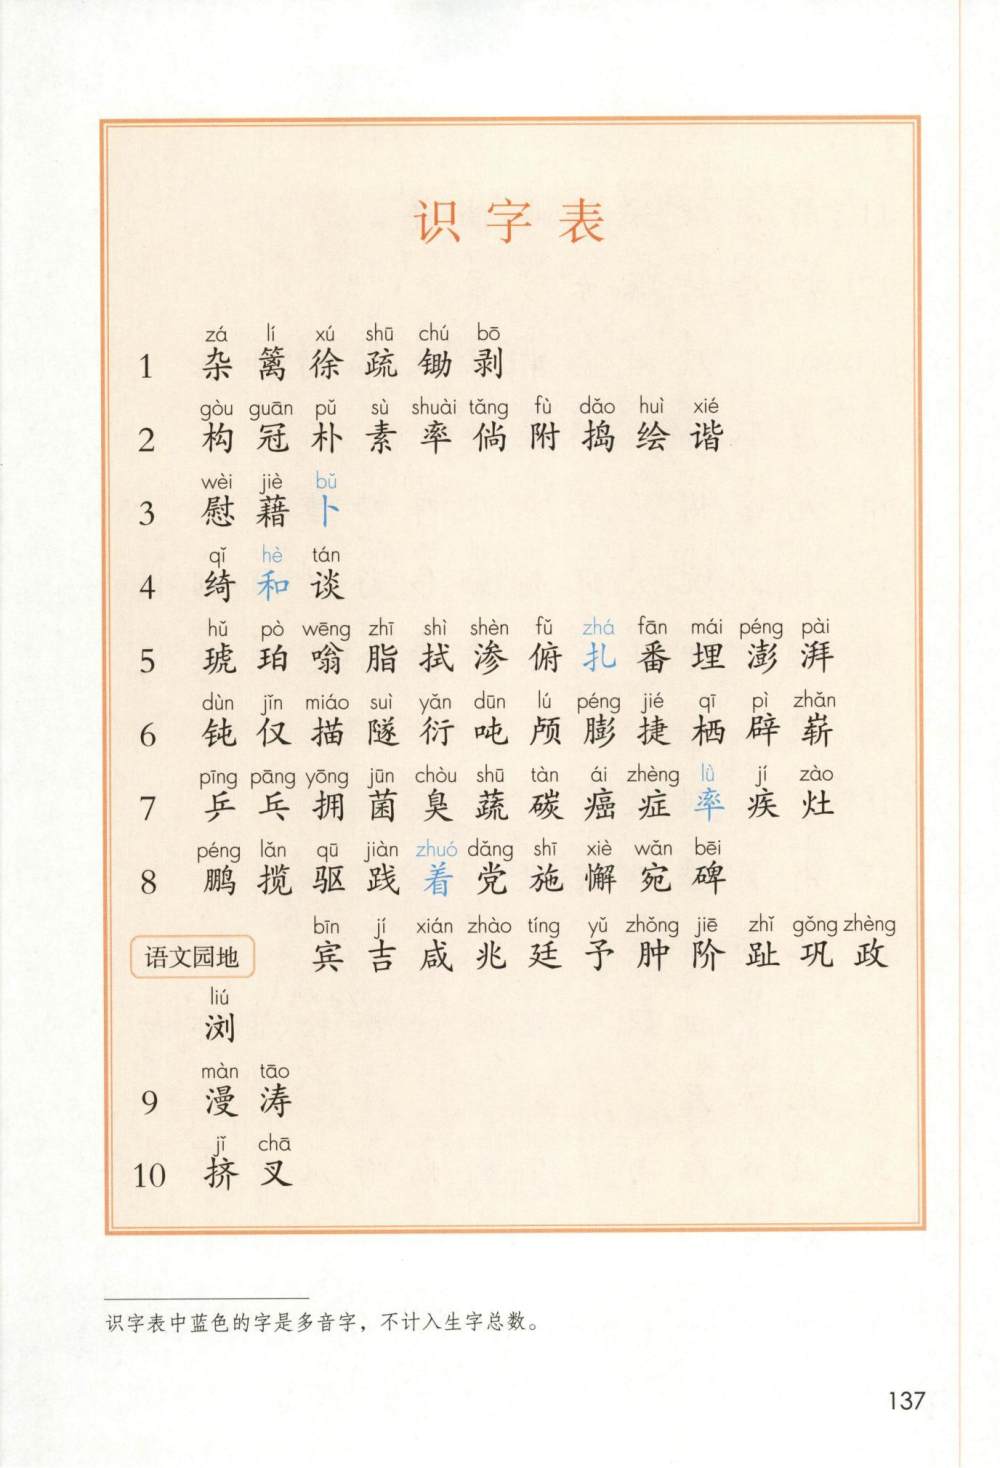 识字表
zá lí xú shū chú bō
1 杂 篱 徐 疏 锄 剥
gòu guān pǔ sù shuài tǎng fù dǎo huì xié
2 构 冠 朴 素 率 倘 附 捣 绘 谐
wèi jiè bǔ
3 慰 藉 卜
qǐ hè tán
4 绮 和 谈
hǔ pò wēng zhī shì shèn fǔ zhá fān mái péng pài
5 琥 珀 嗡 脂 拭 渗 俯 扎 番 埋 澎 湃
dùn jǐn miáo suì yǎn dūn lú péng jié qī pì zhǎn
6 钝 仅 描 隧 衍 吨 颅 膨 捷 栖 辟 崭
pīng pāng yōng jūn chòu shū tàn ái zhèng lǜ jí zào
7 乒 乓 拥 菌 臭 蔬 碳 癌 症 率 疾 灶
péng lǎn qū jiàn zhuó dǎng shī xiè wǎn bēi
8 鹏 揽 驱 践 着 党 施 懈 宛 碑
bīn jí xián zhào tíng yǔ zhǒng jiē zhǐ gǒng zhèng
语文园地 宾 吉 咸 兆 廷 予 肿 阶 趾 巩 政
liú
浏
màn tāo
9 漫 涛
jǐ chā
10 挤 叉
识字表中蓝色的字是多音字，不计入生字总数。
137